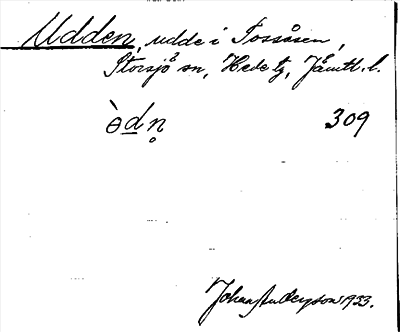 Udden, udde i Tossåsen,
Storsjö sn, Hede tg, Jämtl. l.
ò̱dn̥ 309
Johan Anderson 1933.